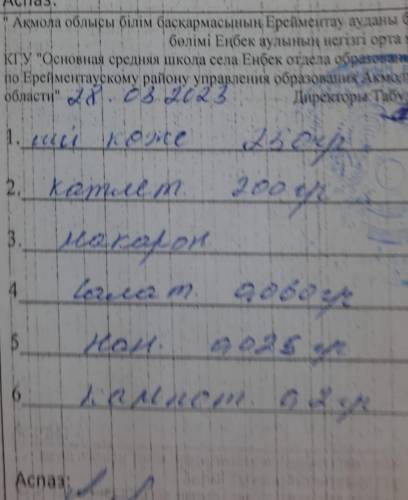 Аспаз:
" Ақмола облысы білім басқармасының Ерейментау ауданы б
бөлімі Еңбек аулының негізгі орта
КГУ "Основная средняя школа села Енбек отдела образован
по Ерейментаускому району управления образования Акмол
области" 28.03.2023 Директоры Табу
1. көже 250гр
2. катлет. 200 гр
3. макарон
4 Салат. 0,060 гр
5 Нан. 0,025 гр
6 Кампот. 0,2 гр
Аспаз: